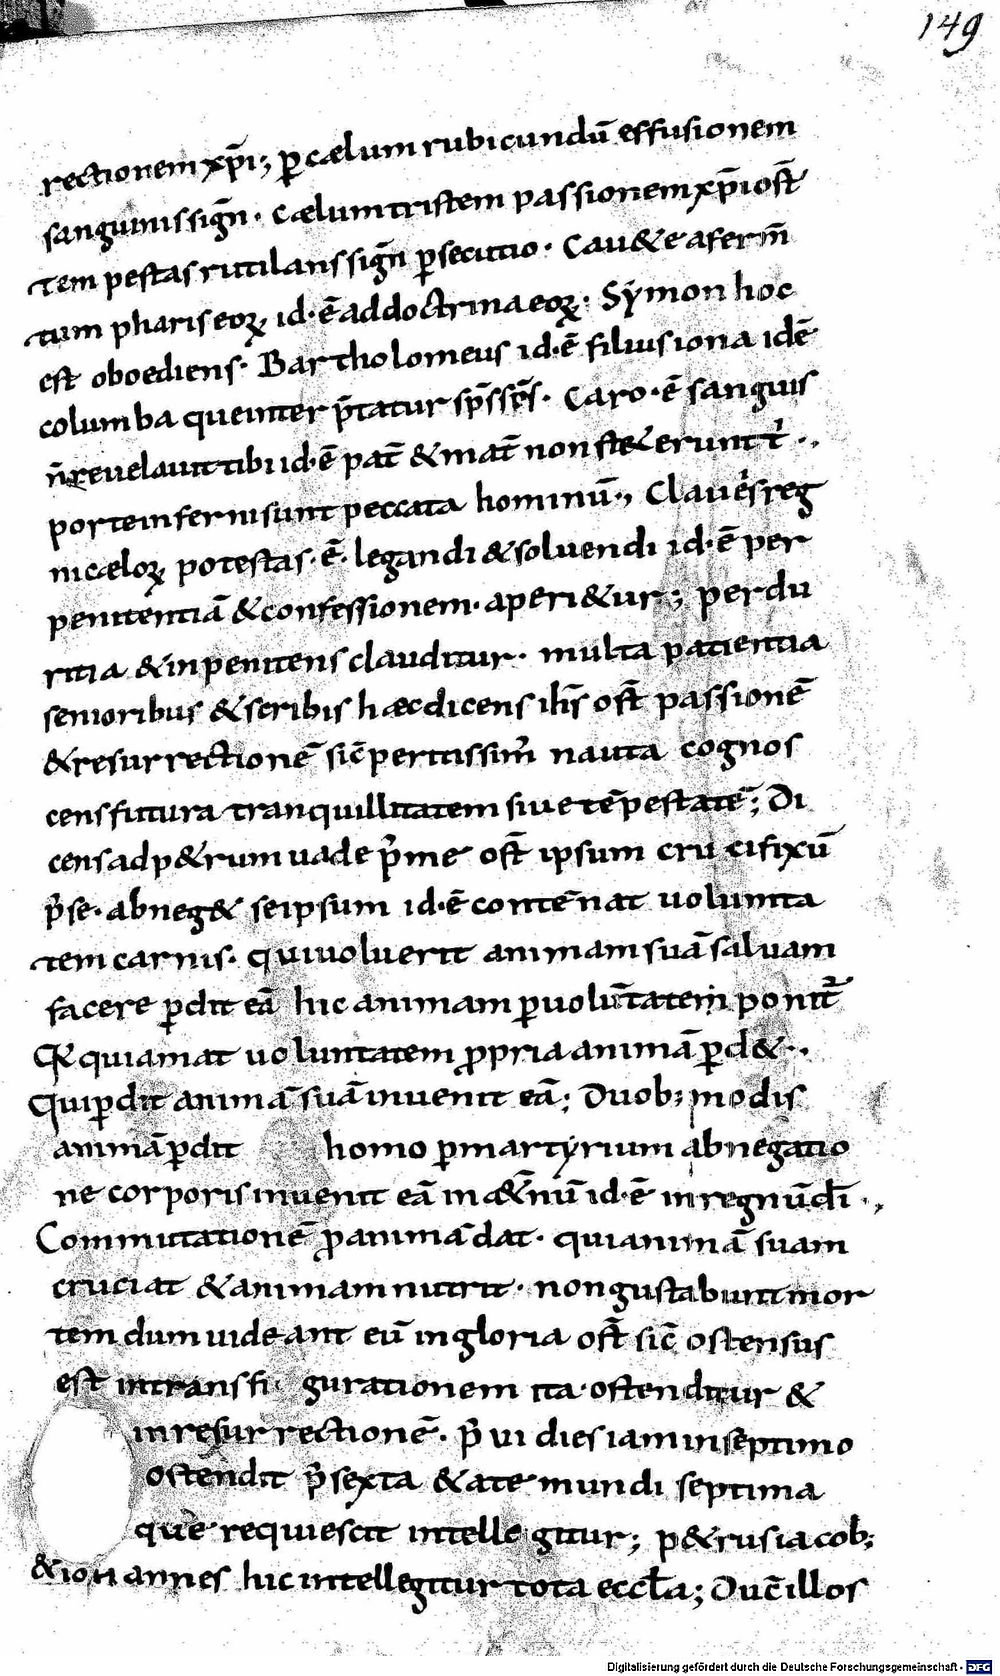 149
rectionem xp̄i; ꝑ cælum rubicundū effusionem
sanguinis sign̄· cælum tristem passionem xp̄i ost̄
tempestas rutilans sign̄ ꝑsecutio· Cau&e a ferm̄
tum phariseoꝝ id·ē ad doctrina eoꝝ· Sẏmon hoc
est oboediens· Bartholomeus id·ē filius iona idē
columba que inter p̄tatur sp̄s sc̄s· Caro·ē sanguis
n̄ reuelauit tibi id·ē pat̄ & mat̄ non
porte inferni sunt peccata hominū·, Claues reg
ni cæloꝝ potestas·ē· legandi & soluendi id·ē per
penitentiā & confessionem· aperi&ur; perdu
ritia & inpenitens clauditur· multa patientia
senioribus & scribis hæc dicens ih̄s ost̄ passionē
& resurrectionē sic̄ peritissim̄ nauta cognos
cens futura tranquillitatem siue tēpestatē; Di
cens ad p&rum uade p̄ me ost̄ ipsum crucifixū
p̄ se· abneg& seipsum id·ē contēnat uolunta
tem carnis· qui uoluerit animam suā saluam
facere ꝑdit eā hic animam ꝑ uolūtatem ponit̄
qui amat uoluntatem ꝓpria animā ꝑd&·,
Qui ꝑdit animā suā inuenit eā; Duob; modis
animā ꝑdit homo ꝑ martẏrium abnegatio
ne corporis inuenit eā in &̄nū id·ē in regnū dī·,
Commutationē ꝓ anima dat· qui animā suam
cruciat & animam nutrit· non gustabunt mor
tem dum uideant eū in gloria ost̄ sic̄ ostensus
est in transfi gurationem ita ostenditur &
in resurrectionē· p̄ ui dies iam in septimo
ostendit p̄ sexta &ate mundi septima
que requiescit intelle gitur; p&rus iacob;
& iohannes hic intellegitur tota eccl̄a; Duc̄ illos
Digitalisierung gefördert durch die Deutsche Forschungsgemeinschaft - DFG